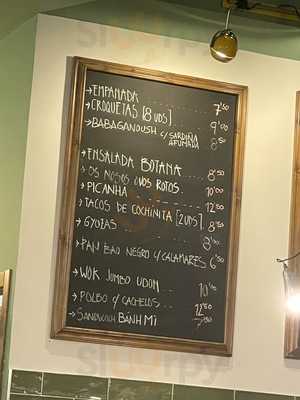 →EMPANADA ........ 7'50
→CROQUETAS [8 UDS] ..... 9'00
→BABAGANOUSH c/ SARDIÑA
AFUMADA 8'50
→ENSALADA BOTANA ..... 8'50
→OS NOSOS OVOS ROTOS. 10'00
→PICANHA ........ 12'50
→TACOS DE COCHINITA [2 UDS]. 8'50
→GYOZAS ........ 8'00
→PAN BAO NEGRO c/ CALAMARES 6'50
→WOK JUMBO UDON ... 10'00
→POLBO c/ CACHELOS ... 12'50
→SANDWICH BÁNH MÌ ... 7'50